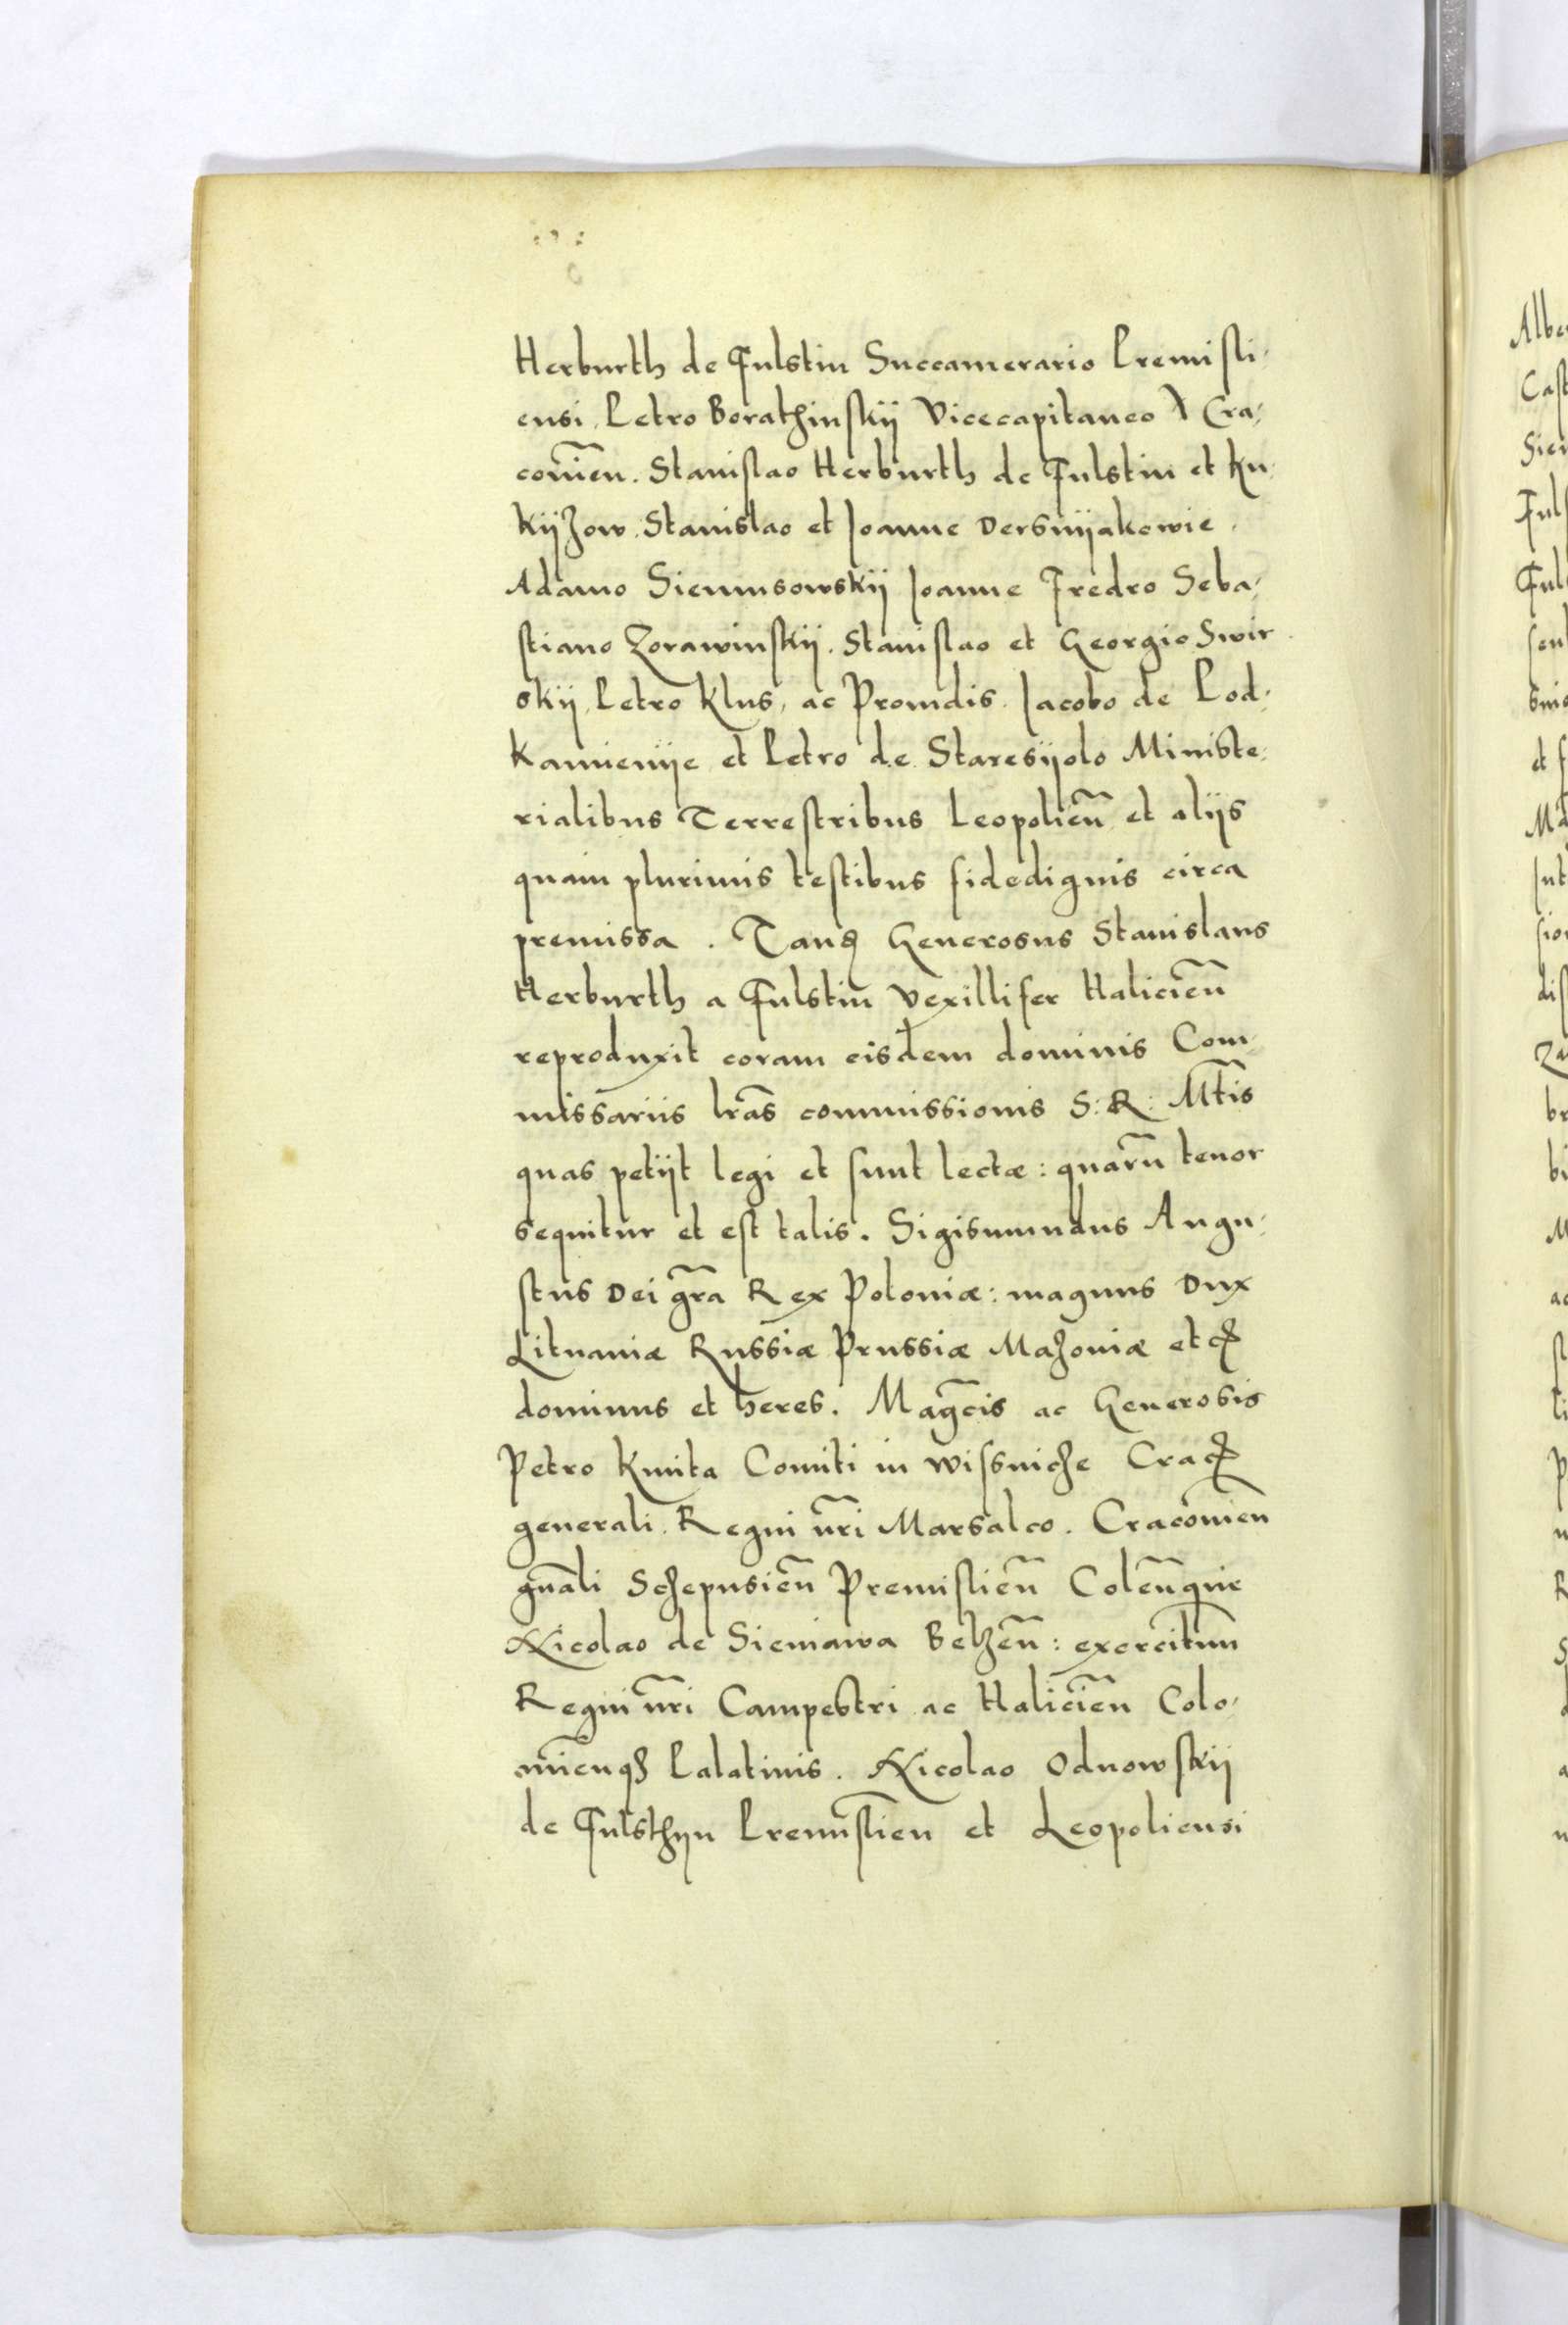 Herburth de Fulstin Succamerario Premisli-
ensi, Petro Borathinskij Vicecapitaneo X Cra-
covien̄. Stanislao Herburth de Fulstin et Ku-
kijzow. Stanislao et Joanne Dersnijakowie.
Adamo Siennisowskij Joanne Fredro Seba-
stiano Zorawinskij. Stanislao et Georgio Swir
skij, Petro Klus, ac Prouidis Jacobo de Pod-
kamienije et Petro de Staresijolo Ministe-
rialibus Terrestribus Leopolien̄ et alijs
quam plurimis testibus fidedignis circa
premissa. Tanq Generosus Stanislaus
Herburth a Fulstin Vexillifer Halicien̄
reproduxit coram eisdem dominis Com-
missariis lr̄as commissionis S: R: Mt̄is
quas petijt legi et sunt lectæ: quarū tenor
sequitur et est talis. Sigismundus Augu-
stus Dei gr̄a Rex Poloniæ: magnus Dux
Lituaniæ Russiæ Prussiæ Mazoniæ etcꝫ
dominus et heres. Mag̅cis ac Generosis
Petro Kmita Comiti in Wissnicze Cracꝫ
generali. Regni nr̄i Marsalco. Cracovien̄
gnāli Sczepusien̄ Premislien̄ Colen̄que
Nicolao de Sieniawa Belzen̄: exercituum
Regni nr̄i Campestri ac Halicien̄ Colo-
mienqꝫ Palatinis. Nicolao Odnowskij
de Fulsthijn Premislien̄ et Leopoliensi
Albe
Cast
Sien
Ful
Ful